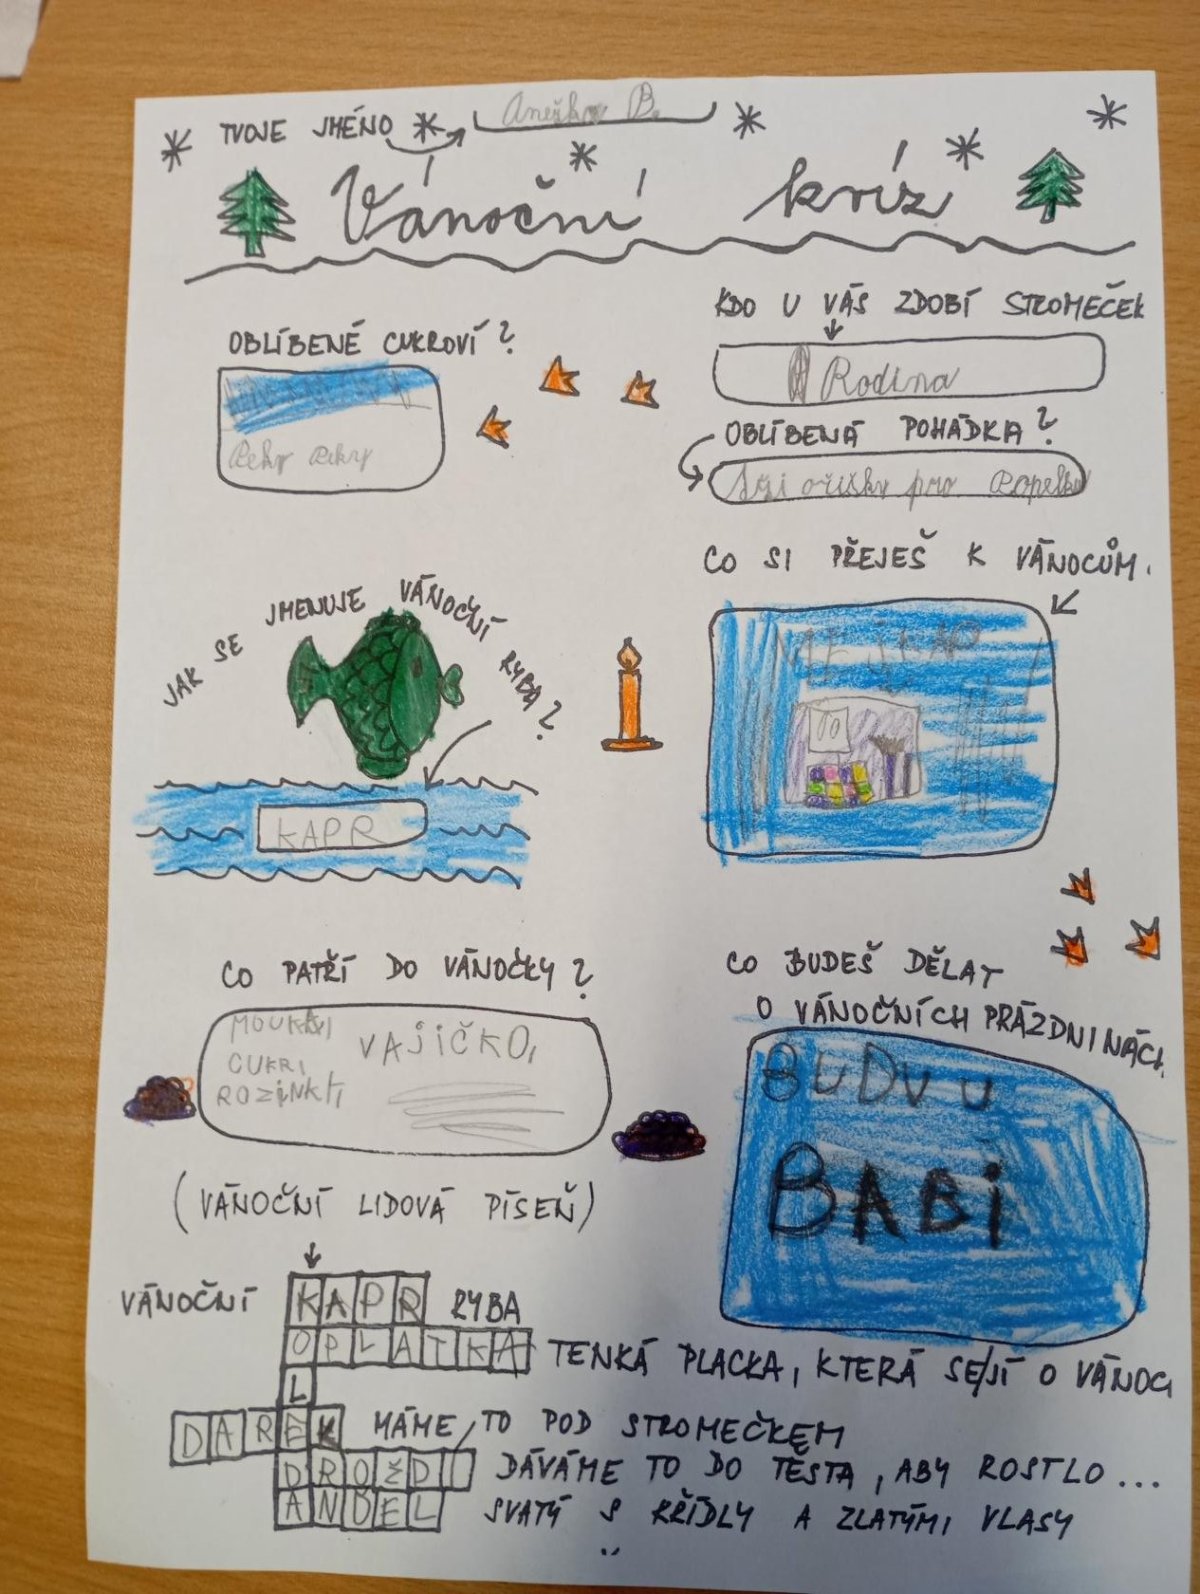 TVOJE JMÉNO
Anežka B.
Vánoční kvíz
OBLÍBENÉ CUKROVÍ?
KDO U VÁS ZDOBÍ STROMEČEK
Rodina
OBLÍBENÁ POHÁDKA?
Tři oříšky pro Popelku
CO SI PŘEJEŠ K VÁNOCŮM.
JAK SE JMENUJE VÁNOČNÍ RYBA?
KAPR
CO PATŘÍ DO VÁNOČKY?
VAJÍČKO,
CUKR,
CO BUDEŠ DĚLAT
O VÁNOČNÍCH PRÁZDNINÁCH
BUDU U
BABI
(VÁNOČNÍ LIDOVÁ PÍSEŇ)
VÁNOČNÍ KAPR RYBA
OPLATKA TENKÁ PLACKA, KTERÁ SE JÍ O VÁNOC
L
DAREK MÁME TO POD STROMEČKEM
DROŽDÍ DÁVÁME TO DO TĚSTA, ABY ROSTLO...
ANDEL SVATÝ S KŘÍDLY A ZLATÝMI VLASY